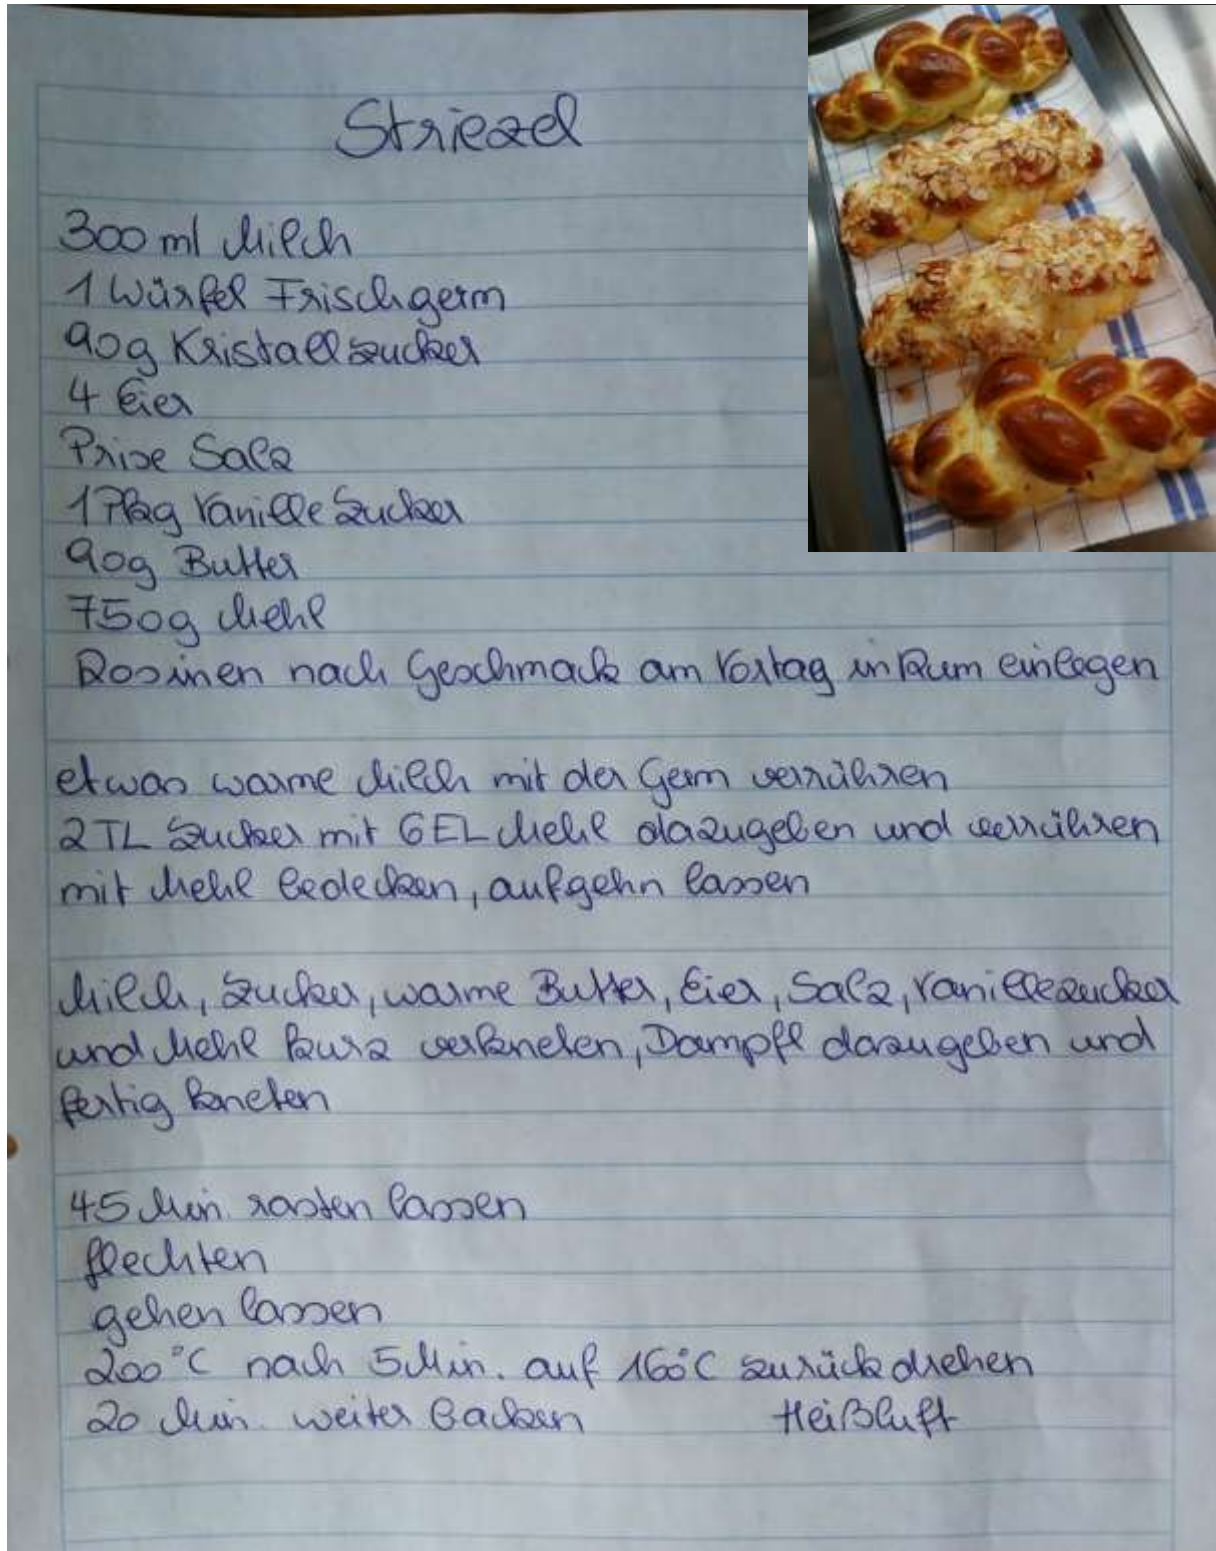 Striezel
300 ml Milch
1 Würfel Frischgerm
90g Kristallzucker
4 Eier
Prise Salz
1 Pkg Vanille Zucker
90g Butter
750g Mehl
Rosinen nach Geschmack am Vortag in Rum einlegen
etwas warme Milch mit der Germ verrühren
2 TL Zucker mit 6 EL Mehl dazugeben und verrühren
mit Mehl bedecken, aufgehn lassen
Milch, Zucker, warme Butter, Eier, Salz, Vanillezucker
und Mehl kurz verkneten, Dampfl dazugeben und
fertig kneten
45 Min. rasten lassen
flechten
gehen lassen
200°C nach 5 Min. auf 160°C zurück drehen
20 Min. weiter backen Heißluft